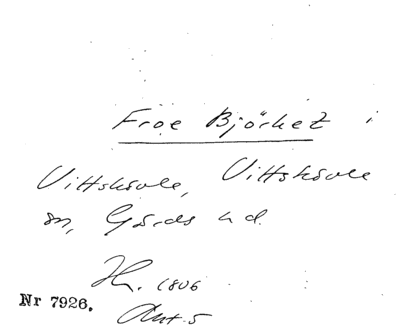 Froe Björket i
Vittskövle, Vittskövle
sn, Gärds hd.
1806
Nr 7926. Akt 5